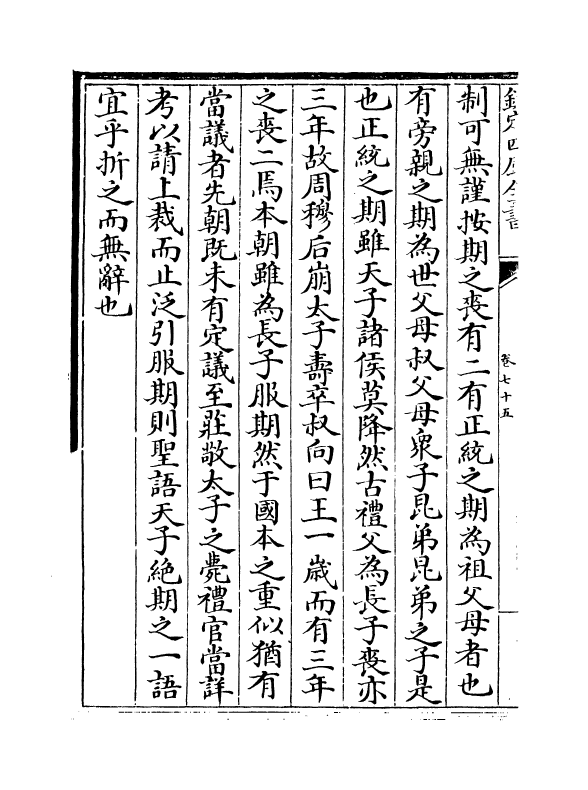 欽定四庫全書
卷七十五
制可無謹按期之喪有二有正統之期為祖父母者也
有旁親之期為世父母叔父母衆子昆弟昆弟之子是
也正統之期雖天子諸侯莫降然古禮父為長子喪亦
三年故周穆后崩太子壽卒叔向曰王一歲而有三年
之喪二焉本朝雖為長子服期然于國本之重似猶有
當議者先朝既未有定議至莊敬太子之薨禮官當詳
考以請上裁而止泛引服期則聖語天子絶期之一語
宜乎折之而無辭也